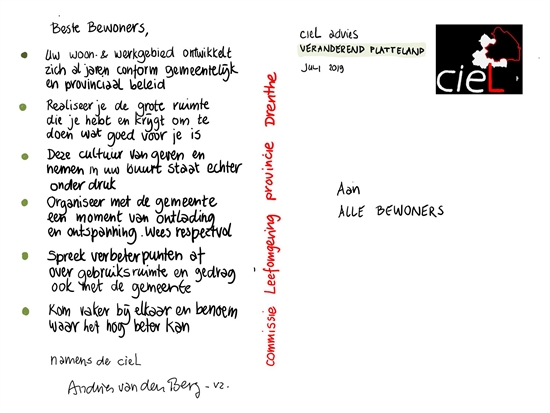 Beste Bewoners,
Uw woon- & werkgebied ontwikkelt
zich al jaren conform gemeentelijk
en provinciaal beleid
Realiseer je de grote ruimte
die je hebt en krijgt om te
doen wat goed voor je is
Deze cultuur van geven en
nemen in uw buurt staat echter
onder druk
Organiseer met de gemeente
een moment van ontlading
en ontspanning. Wees respectvol
Spreek verbeterpunten af
over gebruiksruimte en gedrag
ook met de gemeente
Kom vaker bij elkaar en benoem
waar het nog beter kan
namens de cieL
Andries van den Berg - vz.
commissie Leefomgeving provincie Drenthe
cieL advies
VERANDEREND PLATTELAND
JULI 2019
cieL
Aan
ALLE BEWONERS